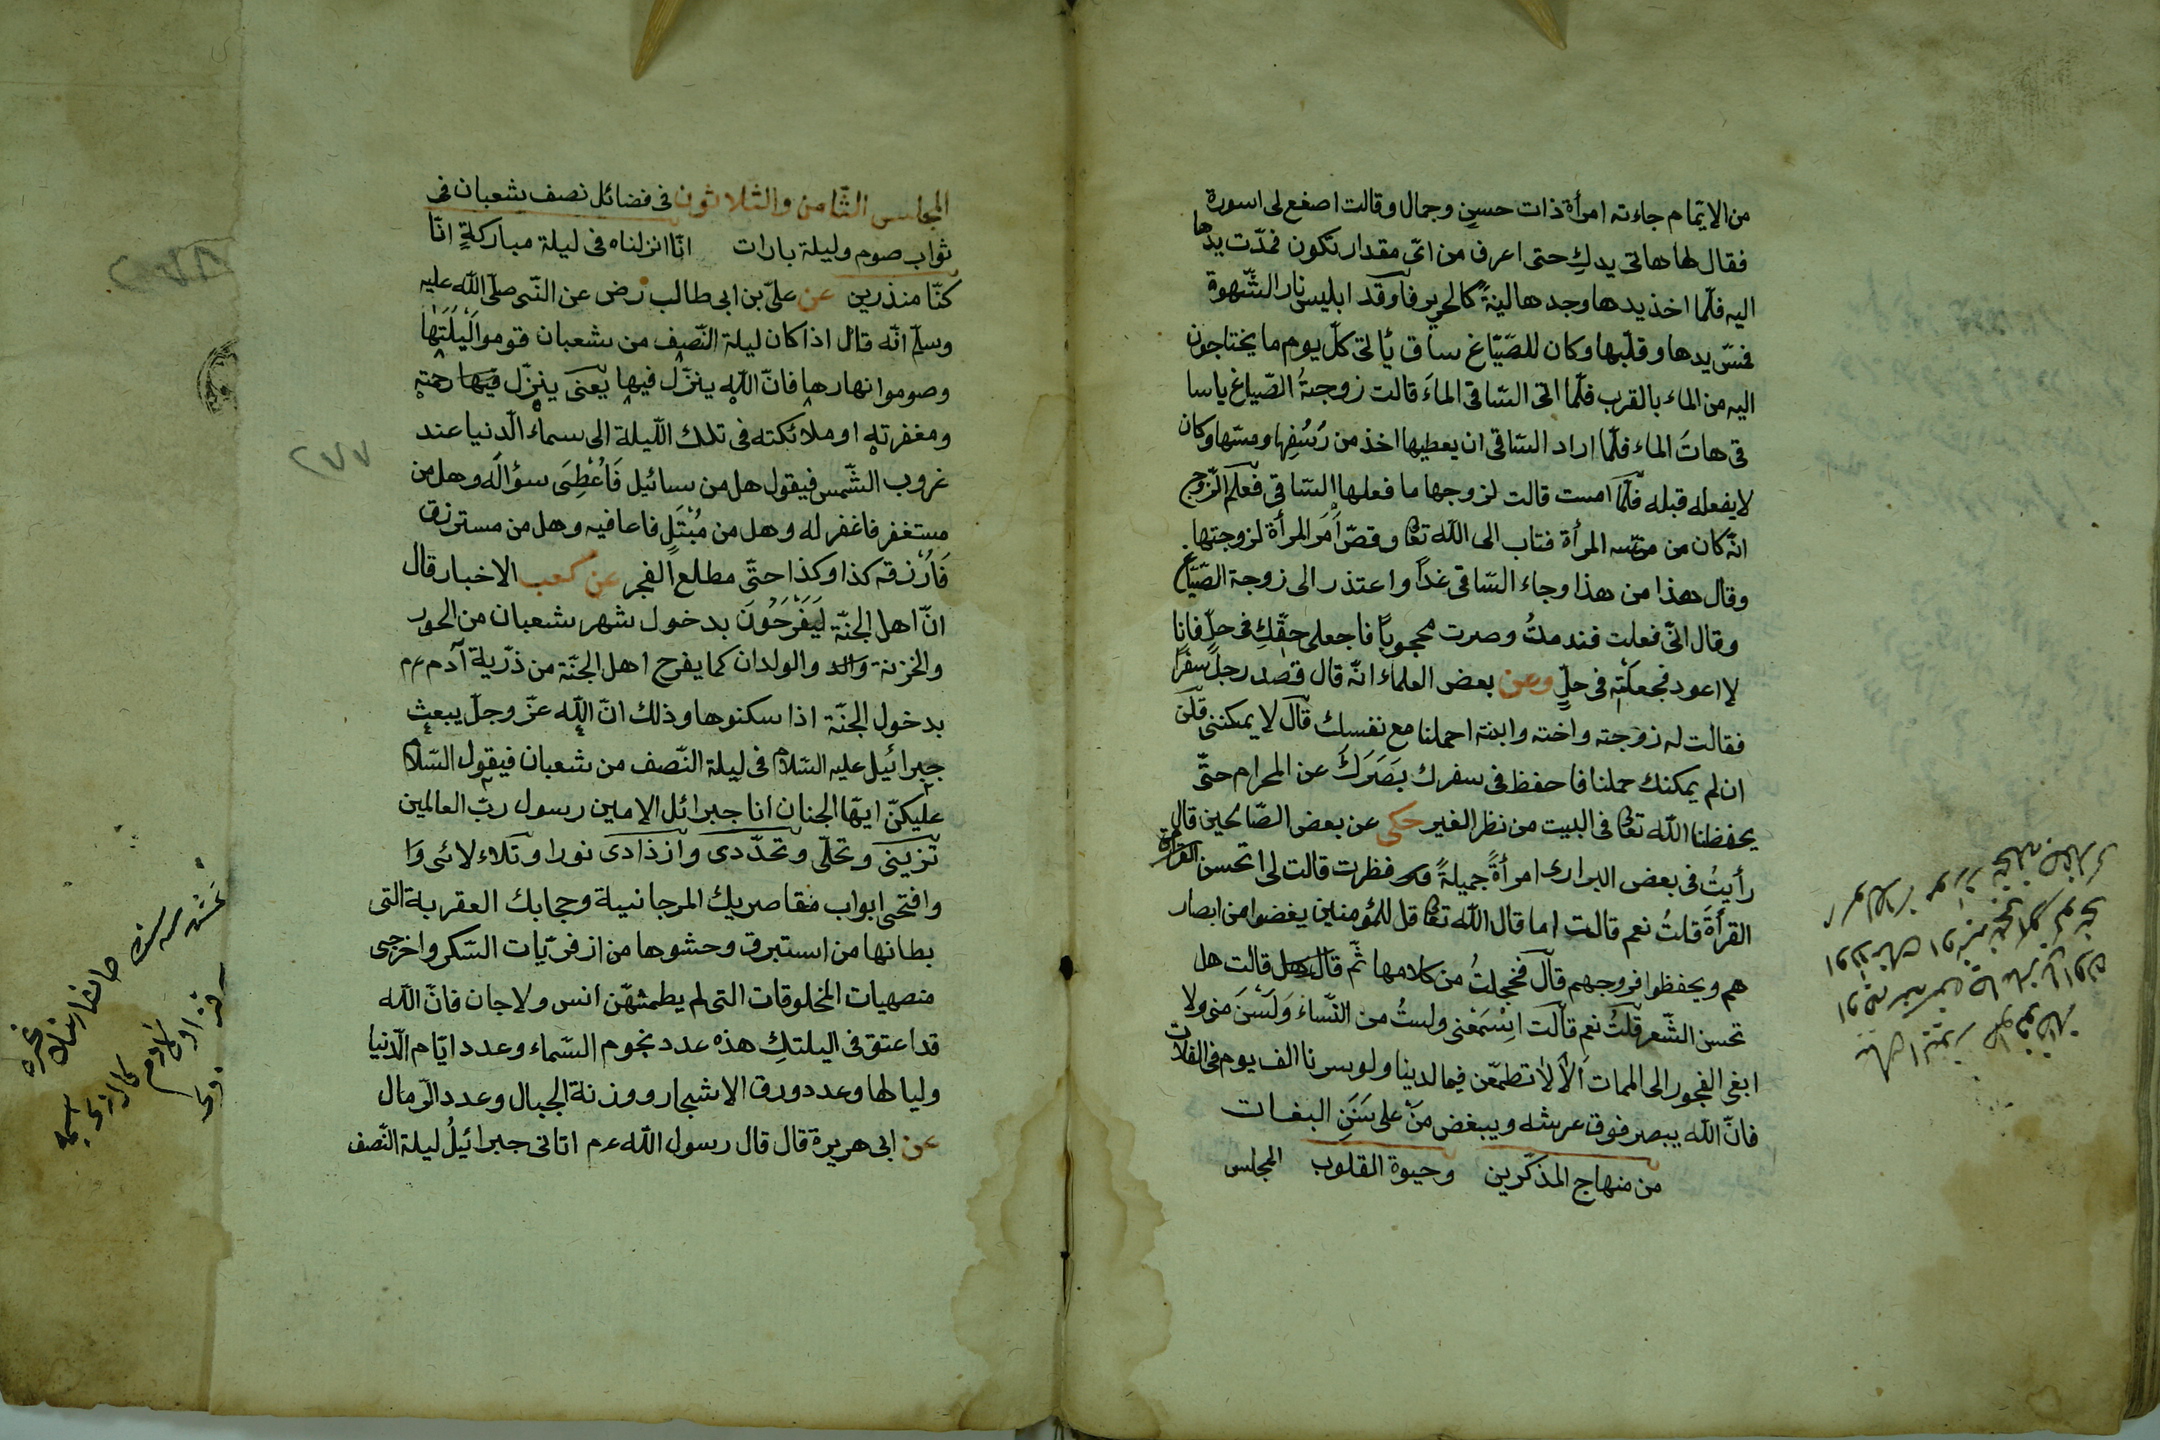 من الايتام جاءته امرأة ذات حسن وجمال وقالت اصغ لى اسورة
فقال لها هاتى يدكِ حتى اعرف من اىّ مقدار تكون فمدّت يدها
اليه فلمّا اخذ يدها وجدها لينةً كالحرير فاوقد ابليس نار الشّهوة
فمسّ يدها وقلّبها وكان للصّيّاغ ساق يأتى كلّ يوم ما يحتاجون
اليه من الماء بالقرب فلمّا اتى السّاقى الماءَ قالت زوجةُ الصّياغ يا سا
قى هات الماء فلمّا اراد السّاقى ان يعطيها اخذ من رُسُفِها ومسّها وكان
لا يفعله قبله فلمّا امست قالت لزوجها ما فعلها السّاقى فعلم الزّوج
انّه كان من مسّه المرأة فتاب الى الله تعا وقصّ أمر المرأة لزوجتها
وقال هذا من هذا وجاء السّاقى غداً واعتذر الى زوجة الصّيّاغ
وقال انّى فعلت فندمتُ وصرت محجوباً فاجعلى حقّكِ فى حلّ فانا
لا اعود فجعلته فى حلّ وعن بعض العلماء انّه قال قصد رجل سفرًا
فقالت له زوجته واخته وابنته احملنا مع نفسك قال لا يمكننى قلن
ان لم يمكنك حملنا فاحفظ فى سفرك بَصَرَكَ عن المحرام حتّى
يحفظنا الله تعا فى البيت من نظر الغير حكى عن بعض الصّالحين قال
رأيتُ فى بعض البرارى امرأةً جميلةً فنظرت قالت لى اتحسن القرآن
القرأة قلتُ نعم قالت اما قال الله تعا قل للمؤمنين يغضوا من ابصار
هم ويحفظوا فروجهم قال فخجلتُ من كلامها ثمّ قالت هل
تحسن الشّعر قلتُ نعم قالت اسْمَعْنى ولستُ من النّساء وَلَسْنَ منى ولا
ابغى الفجور الى الممات الا لا تطمعّن فيما لدينا ولو سرنا الف يوم فى الفلات
فانّ الله يبصر فوق عرشه ويبغض مَنْ على سَنَنِ البغات
من منهاج المذكّرين وحيوة القلوب المجلس
المجلس الثّامن والثّلاثون فى فضائل نصف شعبان فى
ثواب صوم وليلة بارات انّا انزلناه فى ليلة مباركةٍ انّا
كنّا منذرين عن علىّ بن ابى طالب رض عن النّبى صلّى الله عليه
وسلّم انّه قال اذا كان ليلة النّصف من شعبان قوموا لَيْلَتَها
وصوموا نهارها فانّ الله ينزّل فيها يعنى ينزّل رحمته
ومغفرته او ملائكته فى تلك اللّيلة الى سماء الدّنيا عند
غروب الشّمس فيقول هل من سائيل فَاُعْطِىَ سؤاله وهل من
مستغفر فاغفر له وهل من مُبْتَلٍ فاعافيه وهل من مسترزق
فَاَرْزقه كذا وكذا حتّى مطلع الفجر عن كعب الاخبار قال
انّ اهل الجنّة لَيَفْرَحُونَ بدخول شهر شعبان من الحور
والخزنة والولدان كما يفرح اهل الجنّة من ذرّية آدم عم
بدخول الجنّة اذا سكنوها وذلك انّ الله عزّ وجلّ يبعث
جبرائيل عليه السّلام فى ليلة النّصف من شعبان فيقول السّلام
عليكنّ ايّها الجنان انا جبرائل الامين رسول ربّ العالمين
تزيّنى وتحلّى وتجدّدى وازدادى نورا وتلاءلائى وا
وافتحى ابواب مقاصريك المرجانيّة وحجابك العقربة التى
بطانها من استبرق وحشوها من ازفريّات السّكر واخرجى
منصهيات المخلوقات التى لم يطمثهّن انس ولا جان فانّ الله
قد اعتق فى اليلتكِ هذه عدد نجوم السّماء وعدد ايّام الدّنيا
وليالها وعدد ورق الاشجار ووزنة الجبال وعدد الرّمال
عن ابى هريرة قال قال رسول الله عم اتانى جبرائيلُ ليلة النّصف
٢٧٧